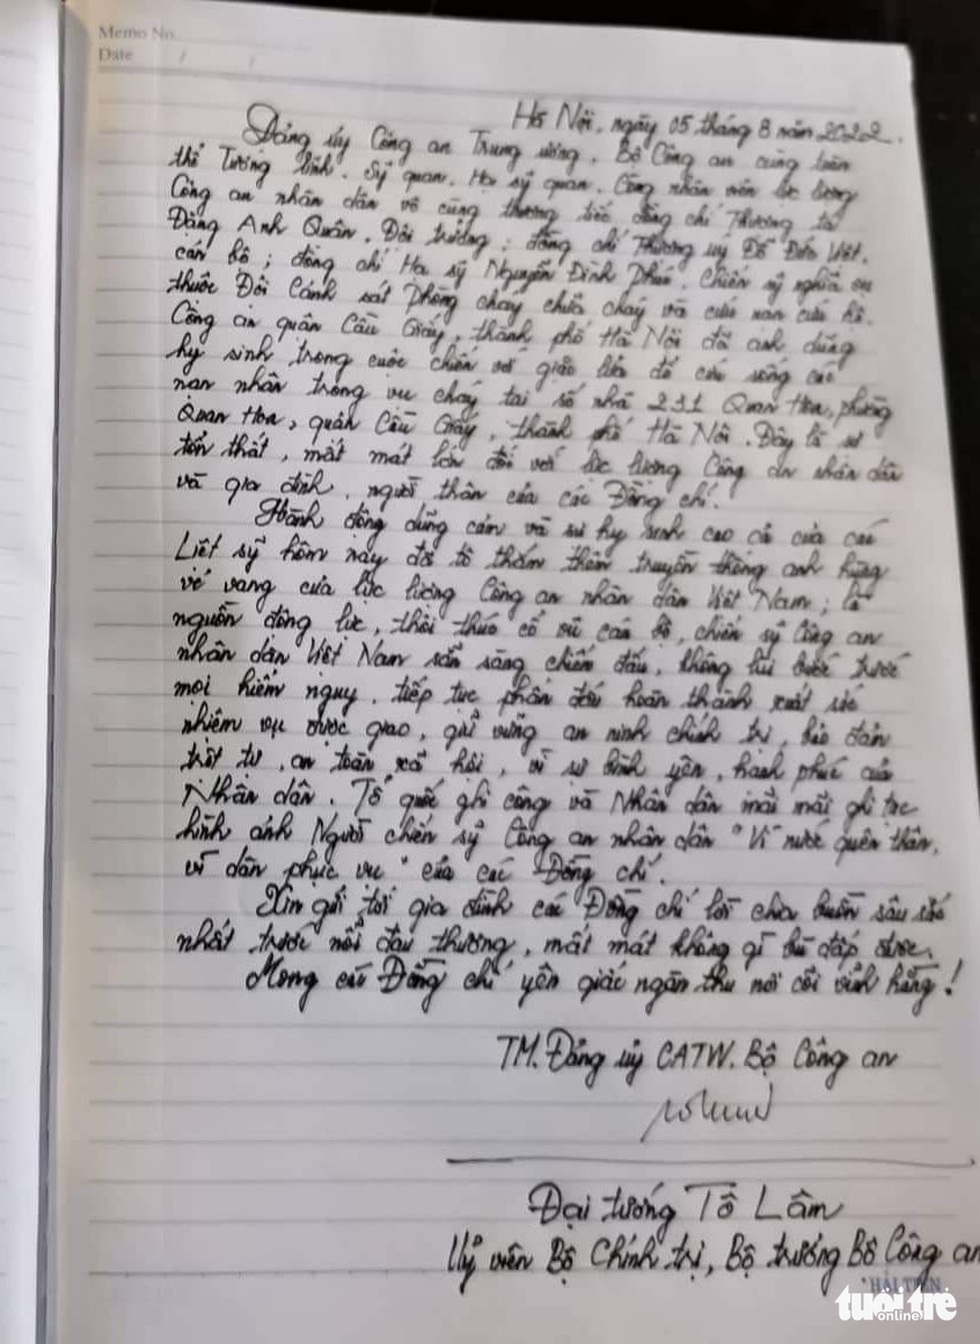 Memo No.
Date / /
Hà Nội, ngày 05 tháng 8 năm 2022.
Đảng ủy Công an Trung ương, Bộ Công an cùng toàn
thể Tướng lĩnh, Sỹ quan, Hạ sỹ quan, Công nhân viên lực lượng
Công an nhân dân vô cùng thương tiếc đồng chí Thượng tá
Đặng Anh Quân, Đội trưởng; đồng chí Thượng uý Đỗ Đức Việt,
cán bộ; đồng chí Hạ sỹ Nguyễn Đình Phúc, chiến sỹ nghĩa vụ
thuộc Đội Cảnh sát Phòng cháy chữa cháy và cứu nạn cứu hộ,
Công an quận Cầu Giấy, thành phố Hà Nội đã anh dũng
hy sinh trong cuộc chiến với giặc lửa để cứu sống các
nạn nhân trong vụ cháy tại số nhà 231 Quan Hoa, phường
Quan Hoa, quận Cầu Giấy, thành phố Hà Nội. Đây là sự
tổn thất, mất mát lớn đối với lực lượng Công an nhân dân
và gia đình, người thân của các Đồng chí.
Hành động dũng cảm và sự hy sinh cao cả của các
Liệt sỹ hôm nay đã tô thắm thêm truyền thống anh hùng
vẻ vang của lực lượng Công an nhân dân Việt Nam; là
nguồn động lực, thôi thúc cổ vũ cán bộ, chiến sỹ Công an
nhân dân Việt Nam sẵn sàng chiến đấu, không lùi bước trước
mọi hiểm nguy, tiếp tục phấn đấu hoàn thành xuất sắc
nhiệm vụ được giao, giữ vững an ninh chính trị, bảo đảm
trật tự, an toàn xã hội, vì sự bình yên, hạnh phúc của
Nhân dân. Tổ quốc ghi công và Nhân dân mãi mãi ghi tạc
hình ảnh Người chiến sỹ Công an nhân dân "Vì nước quên thân,
vì dân phục vụ" của các Đồng chí.
Xin gửi tới gia đình các Đồng chí lời chia buồn sâu sắc
nhất trước nỗi đau thương, mất mát không gì bù đắp được.
Mong các Đồng chí yên giấc ngàn thu nơi cõi vĩnh hằng!
TM. Đảng uỷ CATW. Bộ Công an
Đại tướng Tô Lâm
Uỷ viên Bộ Chính trị, Bộ trưởng Bộ Công an
HẢI TIẾN
tuổi trẻ
online